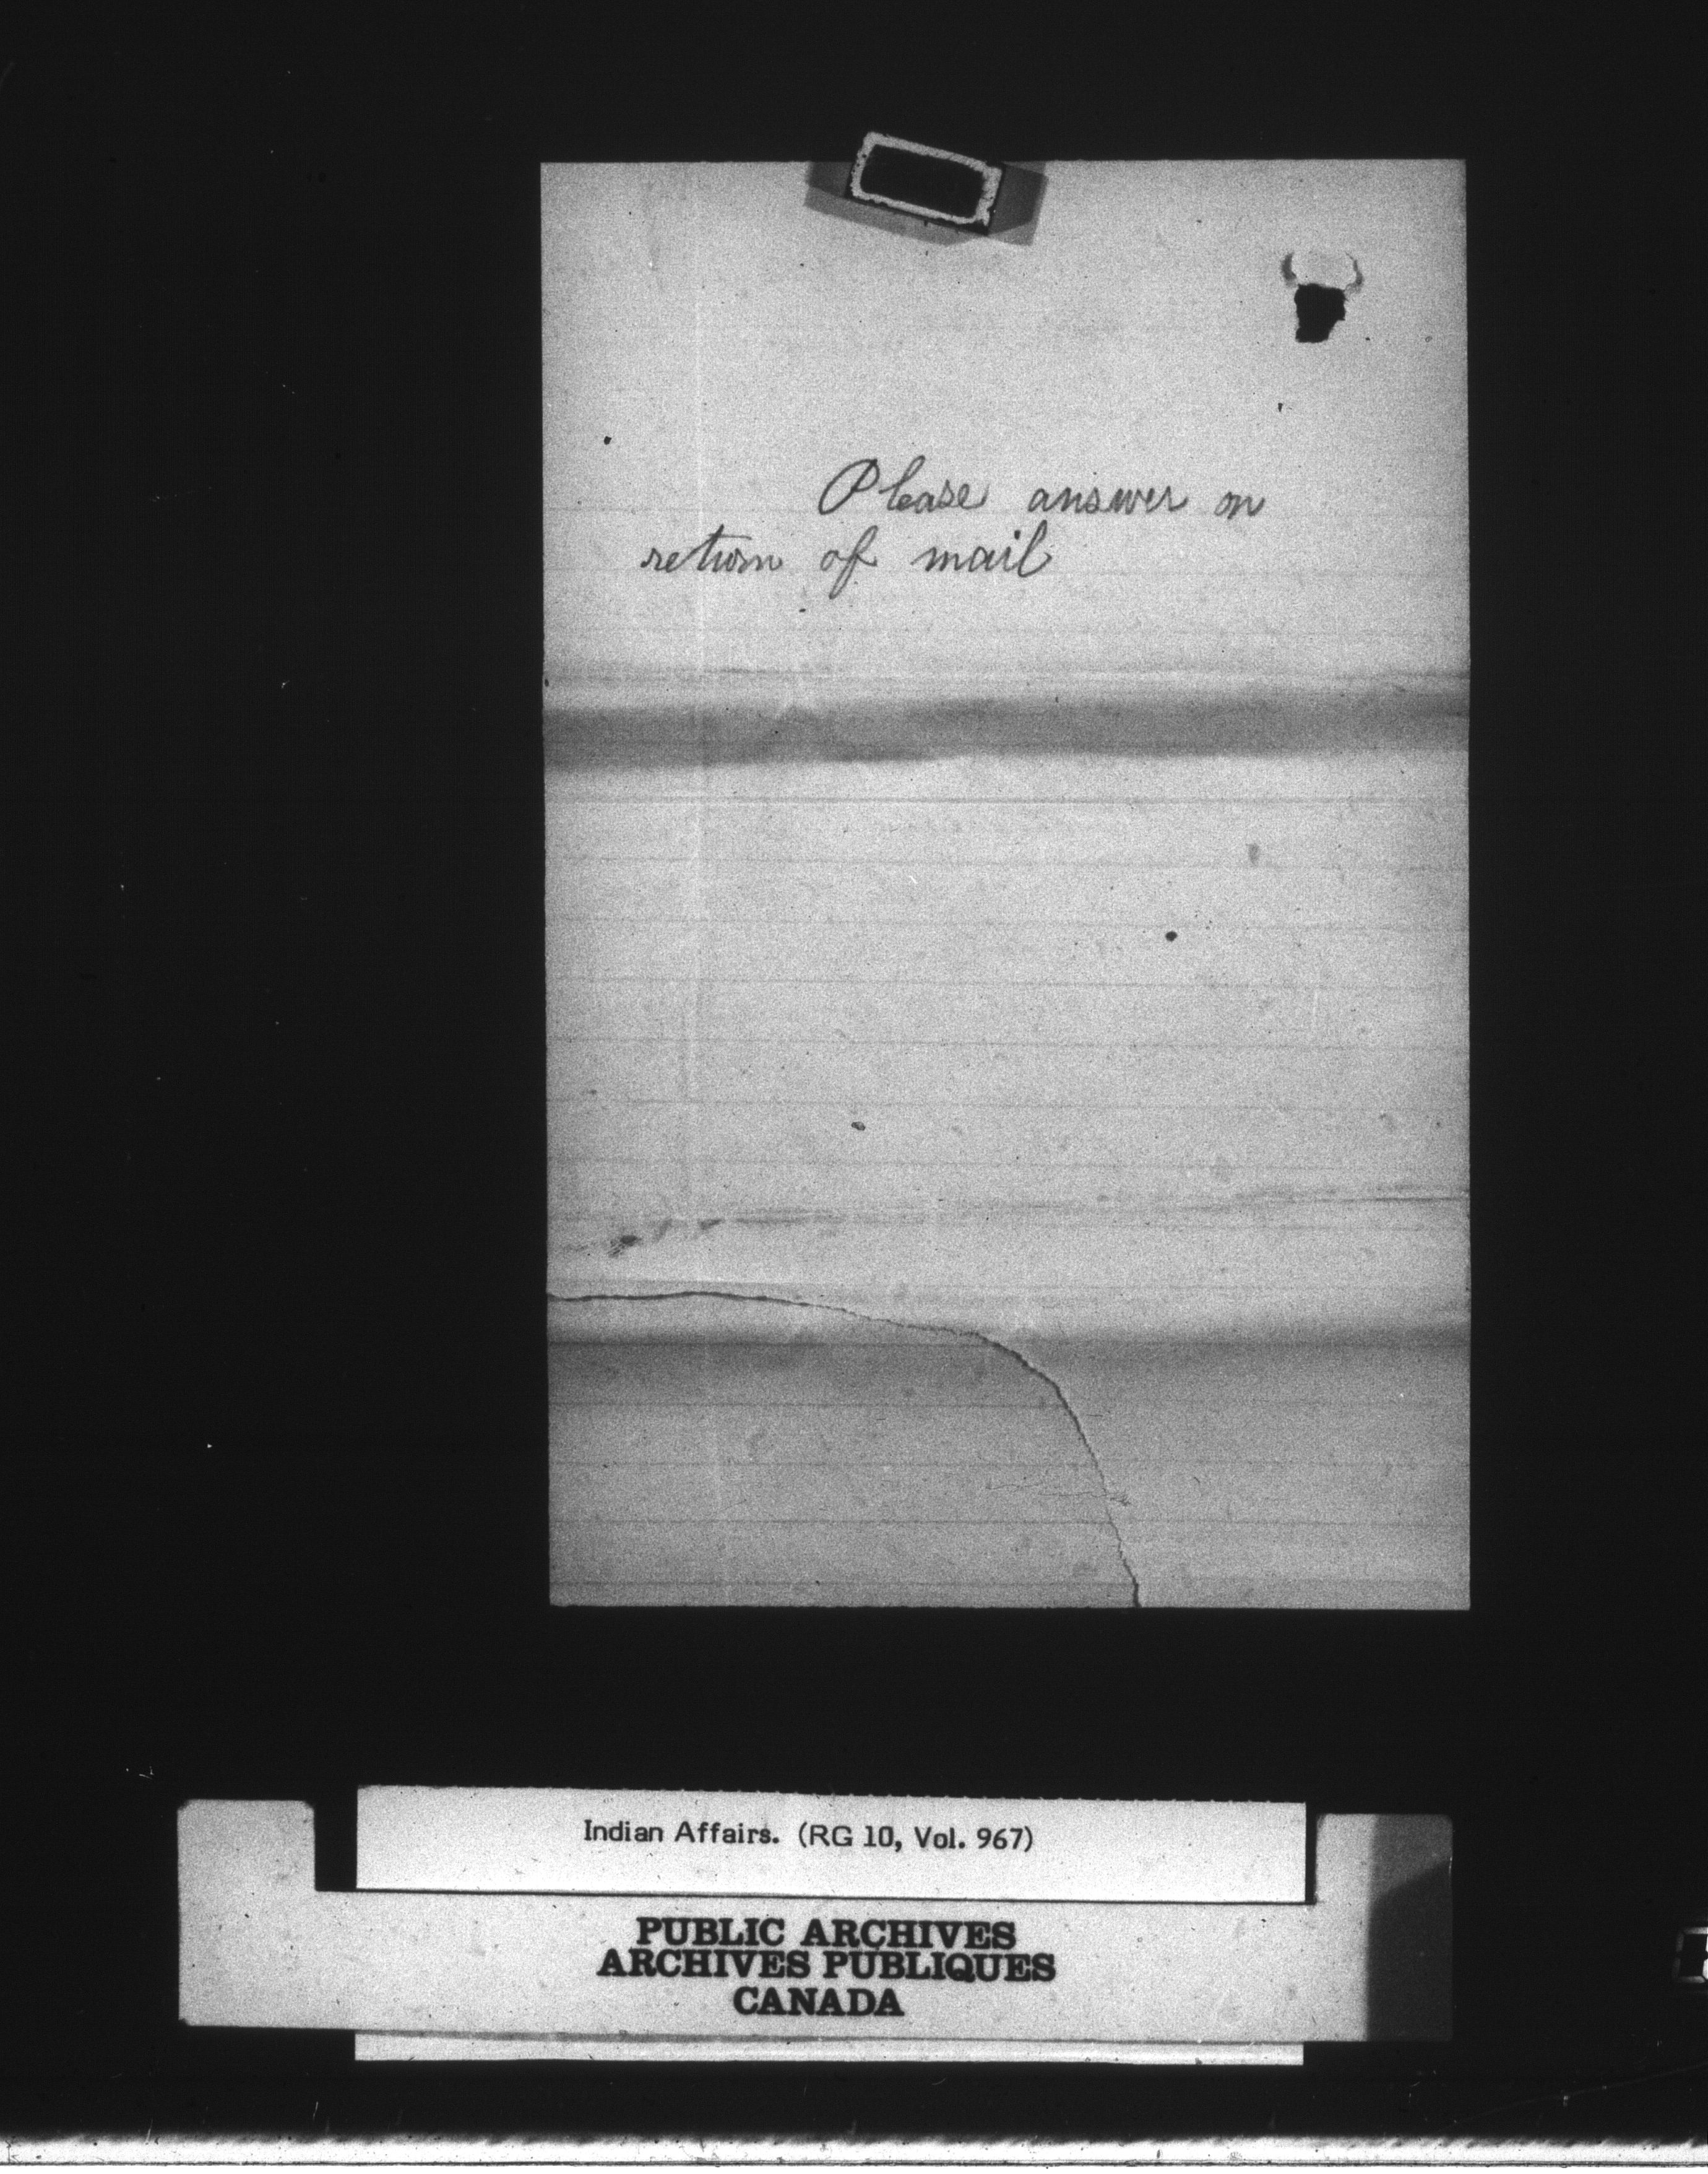 Please answer on
return of mail
Indian Affairs. (RG 10, Vol. 967)
PUBLIC ARCHIVES
ARCHIVES PUBLIQUES
CANADA